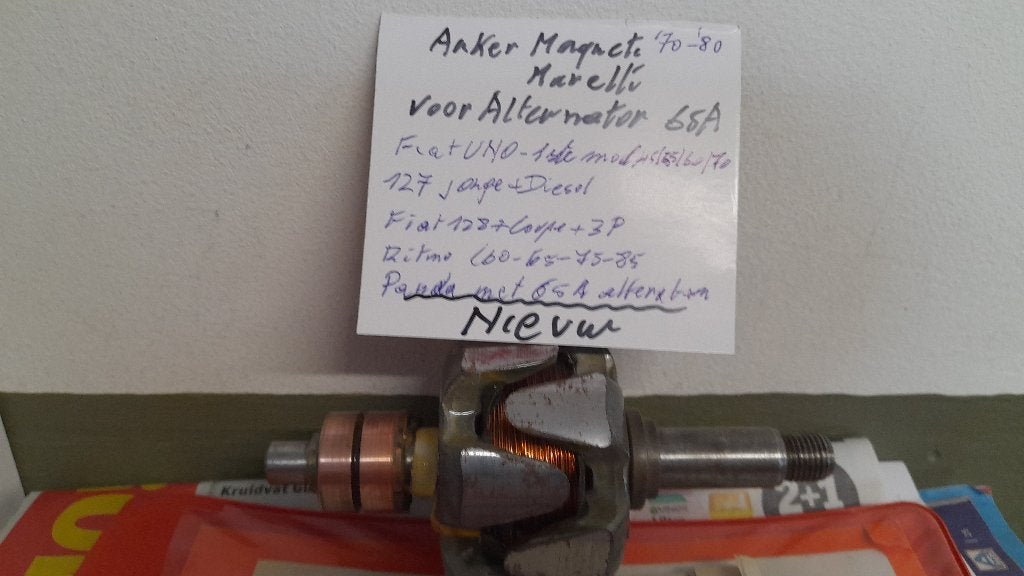 Anker Magneti '70-'80
Marelli
voor Alternator 65A
Fiat UNO-1ste mod. 45/55/60/70
127 jonge+Diesel
Fiat 128+Coupe+3P
Ritmo 60-65-75-85
Panda met 65A alternator
Nieuw
Kruidvat
2+1